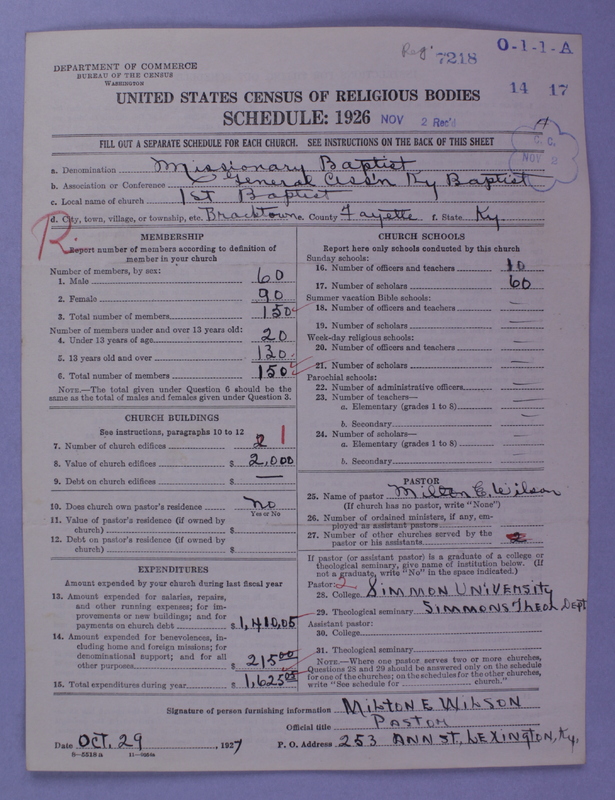 Reg. 7218 O-1-1-A
DEPARTMENT OF COMMERCE
BUREAU OF THE CENSUS
WASHINGTON
14 17
UNITED STATES CENSUS OF RELIGIOUS BODIES
SCHEDULE: 1926 NOV 2 Rec'd
C. C.
NOV 2
FILL OUT A SEPARATE SCHEDULE FOR EACH CHURCH. SEE INSTRUCTIONS ON THE BACK OF THIS SHEET
a. Denomination Missionary Baptist
b. Association or Conference General Ass'n Ky Baptist
c. Local name of church 1st Baptist
d. City, town, village, or township, etc. Bracktown e. County Fayette f. State Ky
R.
MEMBERSHIP
Report number of members according to definition of
member in your church
Number of members, by sex:
1. Male 60
2. Female 90
3. Total number of members 150
Number of members under and over 13 years old:
4. Under 13 years of age 20
5. 13 years old and over 130
6. Total number of members 150
NOTE.—The total given under Question 6 should be the
same as the total of males and females given under Question 3.
CHURCH BUILDINGS
See instructions, paragraphs 10 to 12
7. Number of church edifices 2 1
8. Value of church edifices $ 2,000
9. Debt on church edifices $ —
10. Does church own pastor's residence? No
Yes or No
11. Value of pastor's residence (if owned by
church) $
12. Debt on pastor's residence (if owned by
church) $
EXPENDITURES
Amount expended by your church during last fiscal year
13. Amount expended for salaries, repairs,
and other running expenses; for im-
provements or new buildings; and for
payments on church debt $ 1,410,05
14. Amount expended for benevolences, in-
cluding home and foreign missions; for
denominational support; and for all
other purposes $ 215 00
15. Total expenditures during year $ 1,625 05
CHURCH SCHOOLS
Report here only schools conducted by this church
Sunday schools:
16. Number of officers and teachers 10
17. Number of scholars 60
Summer vacation Bible schools:
18. Number of officers and teachers —
19. Number of scholars —
Week-day religious schools:
20. Number of officers and teachers —
21. Number of scholars —
Parochial schools:
22. Number of administrative officers —
23. Number of teachers—
a. Elementary (grades 1 to 8) —
b. Secondary —
24. Number of scholars—
a. Elementary (grades 1 to 8) —
b. Secondary —
PASTOR
25. Name of pastor Milton E. Wilson
(If church has no pastor, write "None")
26. Number of ordained ministers, if any, em-
ployed as assistant pastors
27. Number of other churches served by the
pastor or his assistants 2
If pastor (or assistant pastor) is a graduate of a college or
theological seminary, give name of institution below. (If
not a graduate, write "No" in the space indicated.)
Pastor: 2
28. College SIMMON UNIVERSITY
29. Theological seminary SIMMONS THEOL DEPT
Assistant pastor:
30. College
31. Theological seminary
NOTE.—Where one pastor serves two or more churches,
Questions 28 and 29 should be answered only on the schedule
for one of the churches; on the schedules for the other churches,
write "See schedule for church."
Signature of person furnishing information MILTON E WILSON
Official title PASTOR
Date OCT. 29, 1927 P. O. Address 253 ANN ST. LEXINGTON, Ky,
8—5518 a